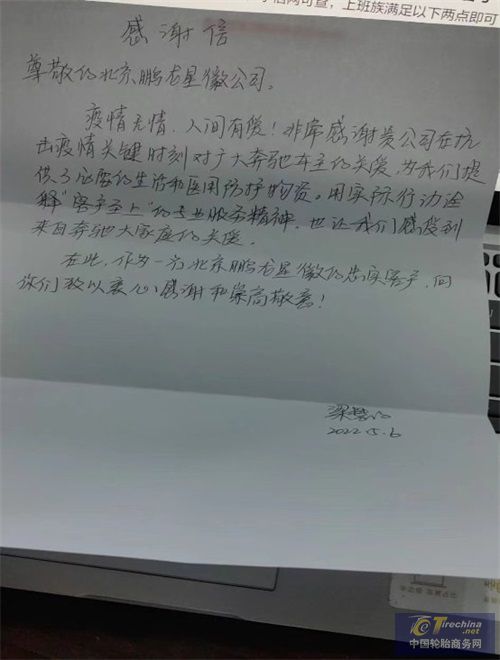 上班族满足以下两点即可
感谢信
尊敬的北京鹏龙星徽公司，
疫情无情，人间有爱！非常感谢贵公司在抗
击疫情关键时刻对广大奔驰车主的关爱，为我们提
供了必要的生活和医用防护物资。用实际行动诠
释"客户至上"的专业服务精神，也让我们感受到
来自奔驰大家庭的关爱。
在此，作为一名北京鹏龙星徽的忠实客户，向
你们致以衷心感谢和崇高敬意！
梁慧
2022.5.6
Tirechina
.net
中国轮胎商务网